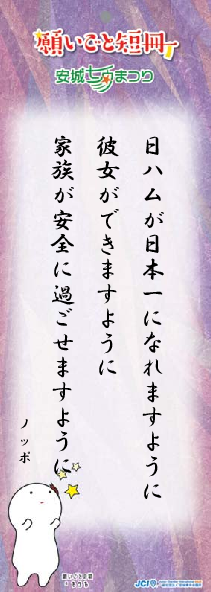 願いごと短冊
安城七夕まつり
日ハムが日本一になれますように
彼女ができますように
家族が安全に過ごせますように
ノッポ
願いごと短冊
JCI